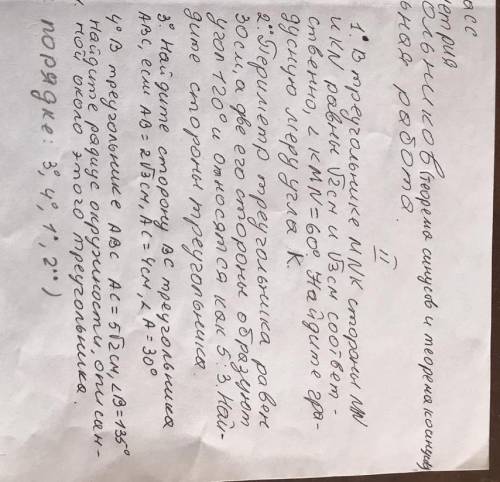 асс
метрия
ольников (теорема синусов и теорема косинусов)
ьная работа.
II
1° В треугольнике MNK стороны MN
и KN равны √2 см и √3 см соответ-
ственно, ∠ KMN = 60° Найдите гра-
дусную меру угла K.
2°° Периметр треугольника равен
30 см, а две его стороны образуют
угол 120° и относятся как 5:3. Най-
дите стороны треугольника
3° Найдите сторону BC треугольника
ABC, если AB = 2√3 см, AC = 4 см, ∠ A = 30°
4° В треугольнике ABC AC = 5√2 см, ∠B = 135°
найдите радиус окружности, описан-
ной около этого треугольника.
порядке: 3°, 4°, 1°, 2°°)